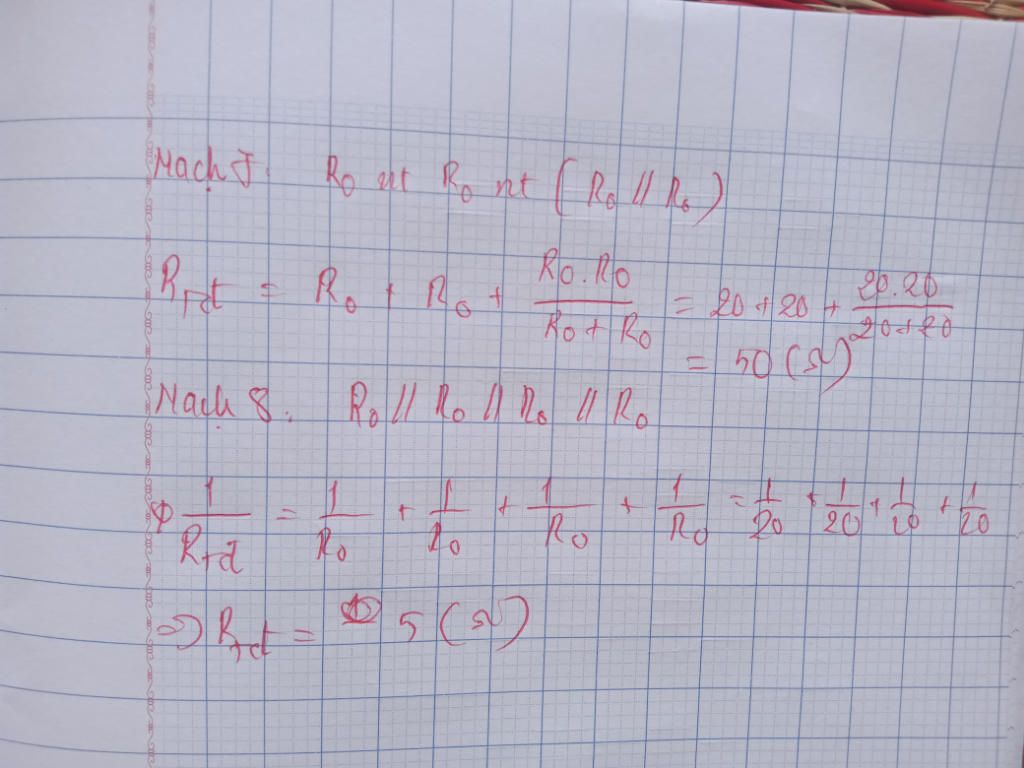 Mạch 7: R₀ nt R₀ nt (R₀ // R₀)
Rtđ = R₀ + R₀ + (R₀.R₀)/(R₀ + R₀) = 20 + 20 + (20.20)/(20+20)
= 50 (Ω)
Mạch 8: R₀ // R₀ // R₀ // R₀
1/Rtđ = 1/R₀ + 1/R₀ + 1/R₀ + 1/R₀ = 1/20 + 1/20 + 1/20 + 1/20
=> Rtđ = 5 (Ω)